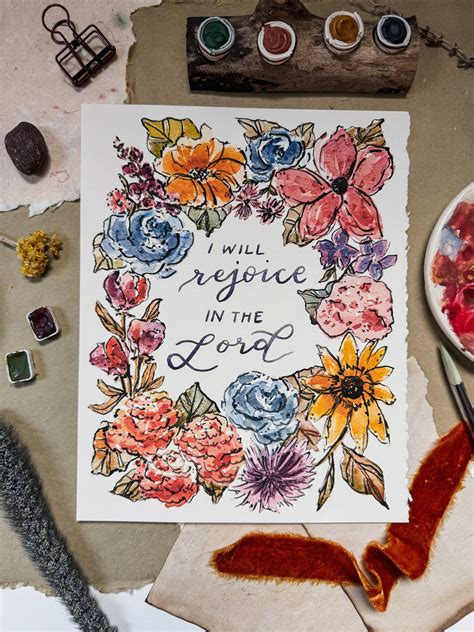 I WILL
rejoice
IN THE
Lord